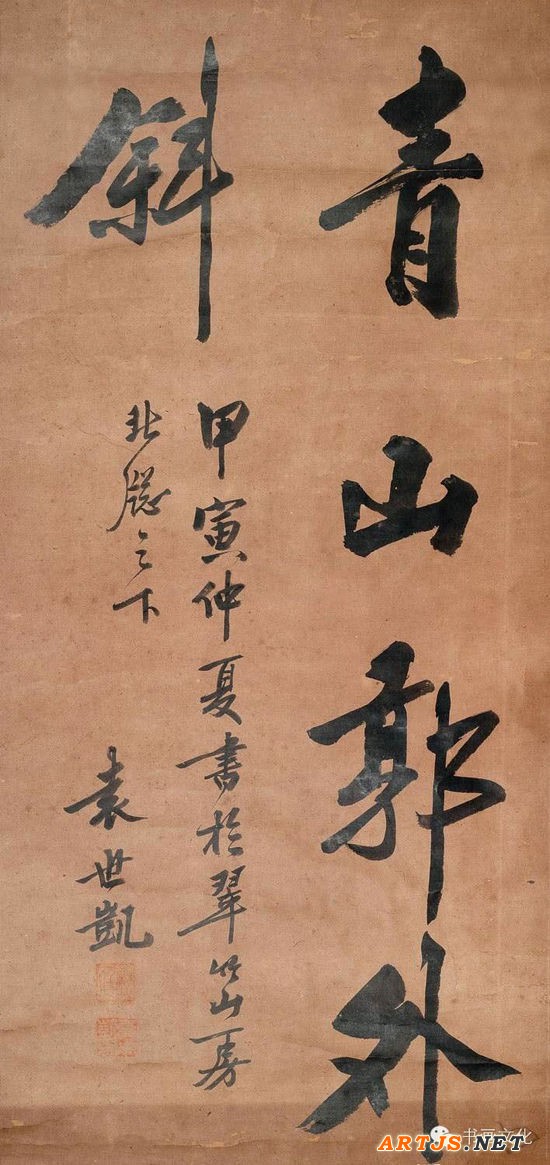 青山郭外
斜
甲寅仲夏书於翠竹山房
北窓之下
袁世凱
书画文化
ARTJS.NET